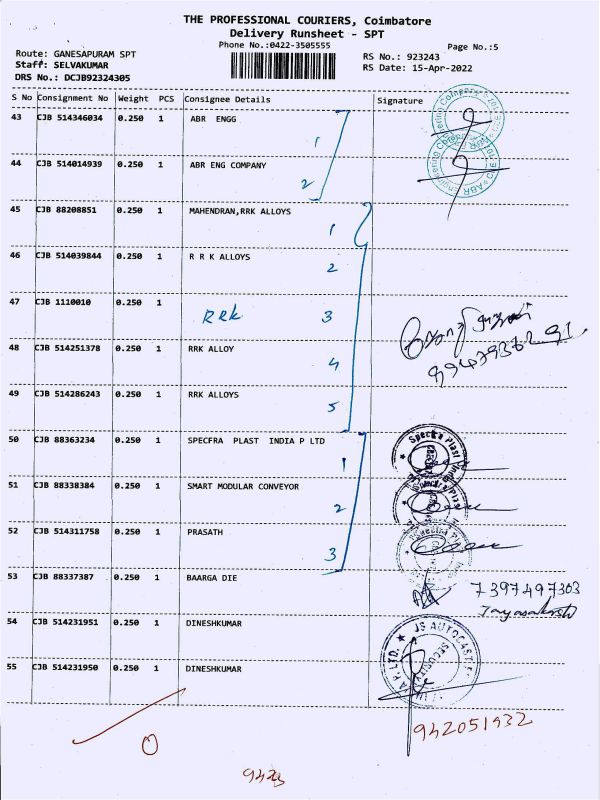 THE PROFESSIONAL COURIERS, Coimbatore
Delivery Runsheet - SPT
Phone No.:0422-3505555
Page No.:5
Route: GANESAPURAM SPT
Staff: SELVAKUMAR
DRS No.: DCJB92324305
RS No.: 923243
RS Date: 15-Apr-2022
S No Consignment No Weight PCS Consignee Details Signature
43 CJB 514346034 0.250 1 ABR ENGG
1
44 CJB 514014939 0.250 1 ABR ENG COMPANY
2
45 CJB 88208851 0.250 1 MAHENDRAN,RRK ALLOYS
1
46 CJB 514039844 0.250 1 R R K ALLOYS
2
47 CJB 1110010 0.250 1
RRK 3
48 CJB 514251378 0.250 1 RRK ALLOY
4
49 CJB 514286243 0.250 1 RRK ALLOYS
5
50 CJB 88363234 0.250 1 SPECFRA PLAST INDIA P LTD
1
Specfra Plast
51 CJB 88338384 0.250 1 SMART MODULAR CONVEYOR
2
52 CJB 514311758 0.250 1 PRASATH
3
53 CJB 88337387 0.250 1 BAARGA DIE
7397497303
54 CJB 514231951 0.250 1 DINESHKUMAR
JS AUTOCAST
SECURITY
55 CJB 514231950 0.250 1 DINESHKUMAR
942051932
0